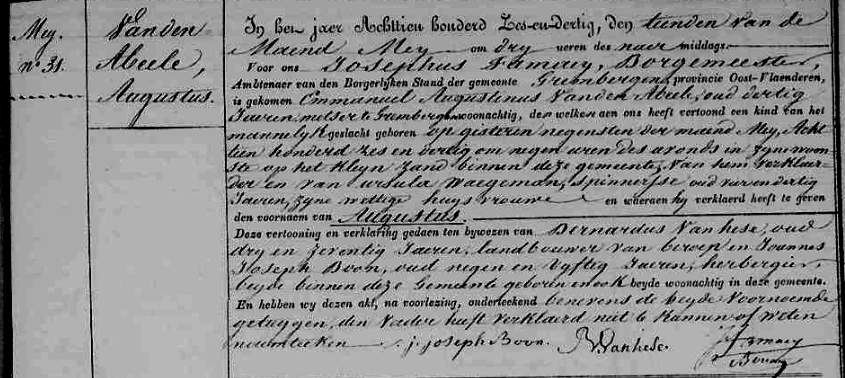 Mey.
n° 31.
Vanden
Abeele,
Augustus.
In het jaer Achttien honderd Zes-en-dertig, den tienden Van de
Maend Mey om dry ueren des naer middags.
Voor ons Josephus Borgemeester,
Ambtenaer van den Borgerlyken Stand der gemeente Grembergen, provincie Oost-Vlaenderen,
is gekomen Emmanuel Augustinus Vanden Abeele, oud dertig
Jaeren, metser te Grembergen woonachtig, den welken aen ons heeft vertoond een kind van het
mannelyk geslacht geboren op gisteren negensten der maend Mey, Acht
tien honderd zes en dertig om negen uren des avonds in zyne woon
ste op het Kleyn Zand binnen deze gemeente, Van hem Verklaer
der en van ursula Waegeman, spinnersse oud dertig
Jaeren, zyne wettige huysvrouwe en waeraen hy verklaerd heeft te geven
den voornaem van Augustus.
Deze vertooning en verklaring gedaen ten bywezen van Bernardus Vanhese, oud
dry en zeventig Jaeren, landbouwer van beroep en Joannes
Joseph Boon, oud negen en vyftig Jaeren, herbergier,
beyde binnen deze Gemeente geboren en ook beyde woonachtig in deze gemeente.
En hebben wy dezen akt, na voorlezing, onderteekend benevens de beyde Voornoemde
getuygen, den Vader heeft Verklaerd niet te Kannen of weten
naemteeken j. joseph Boon. B. Vanhese.